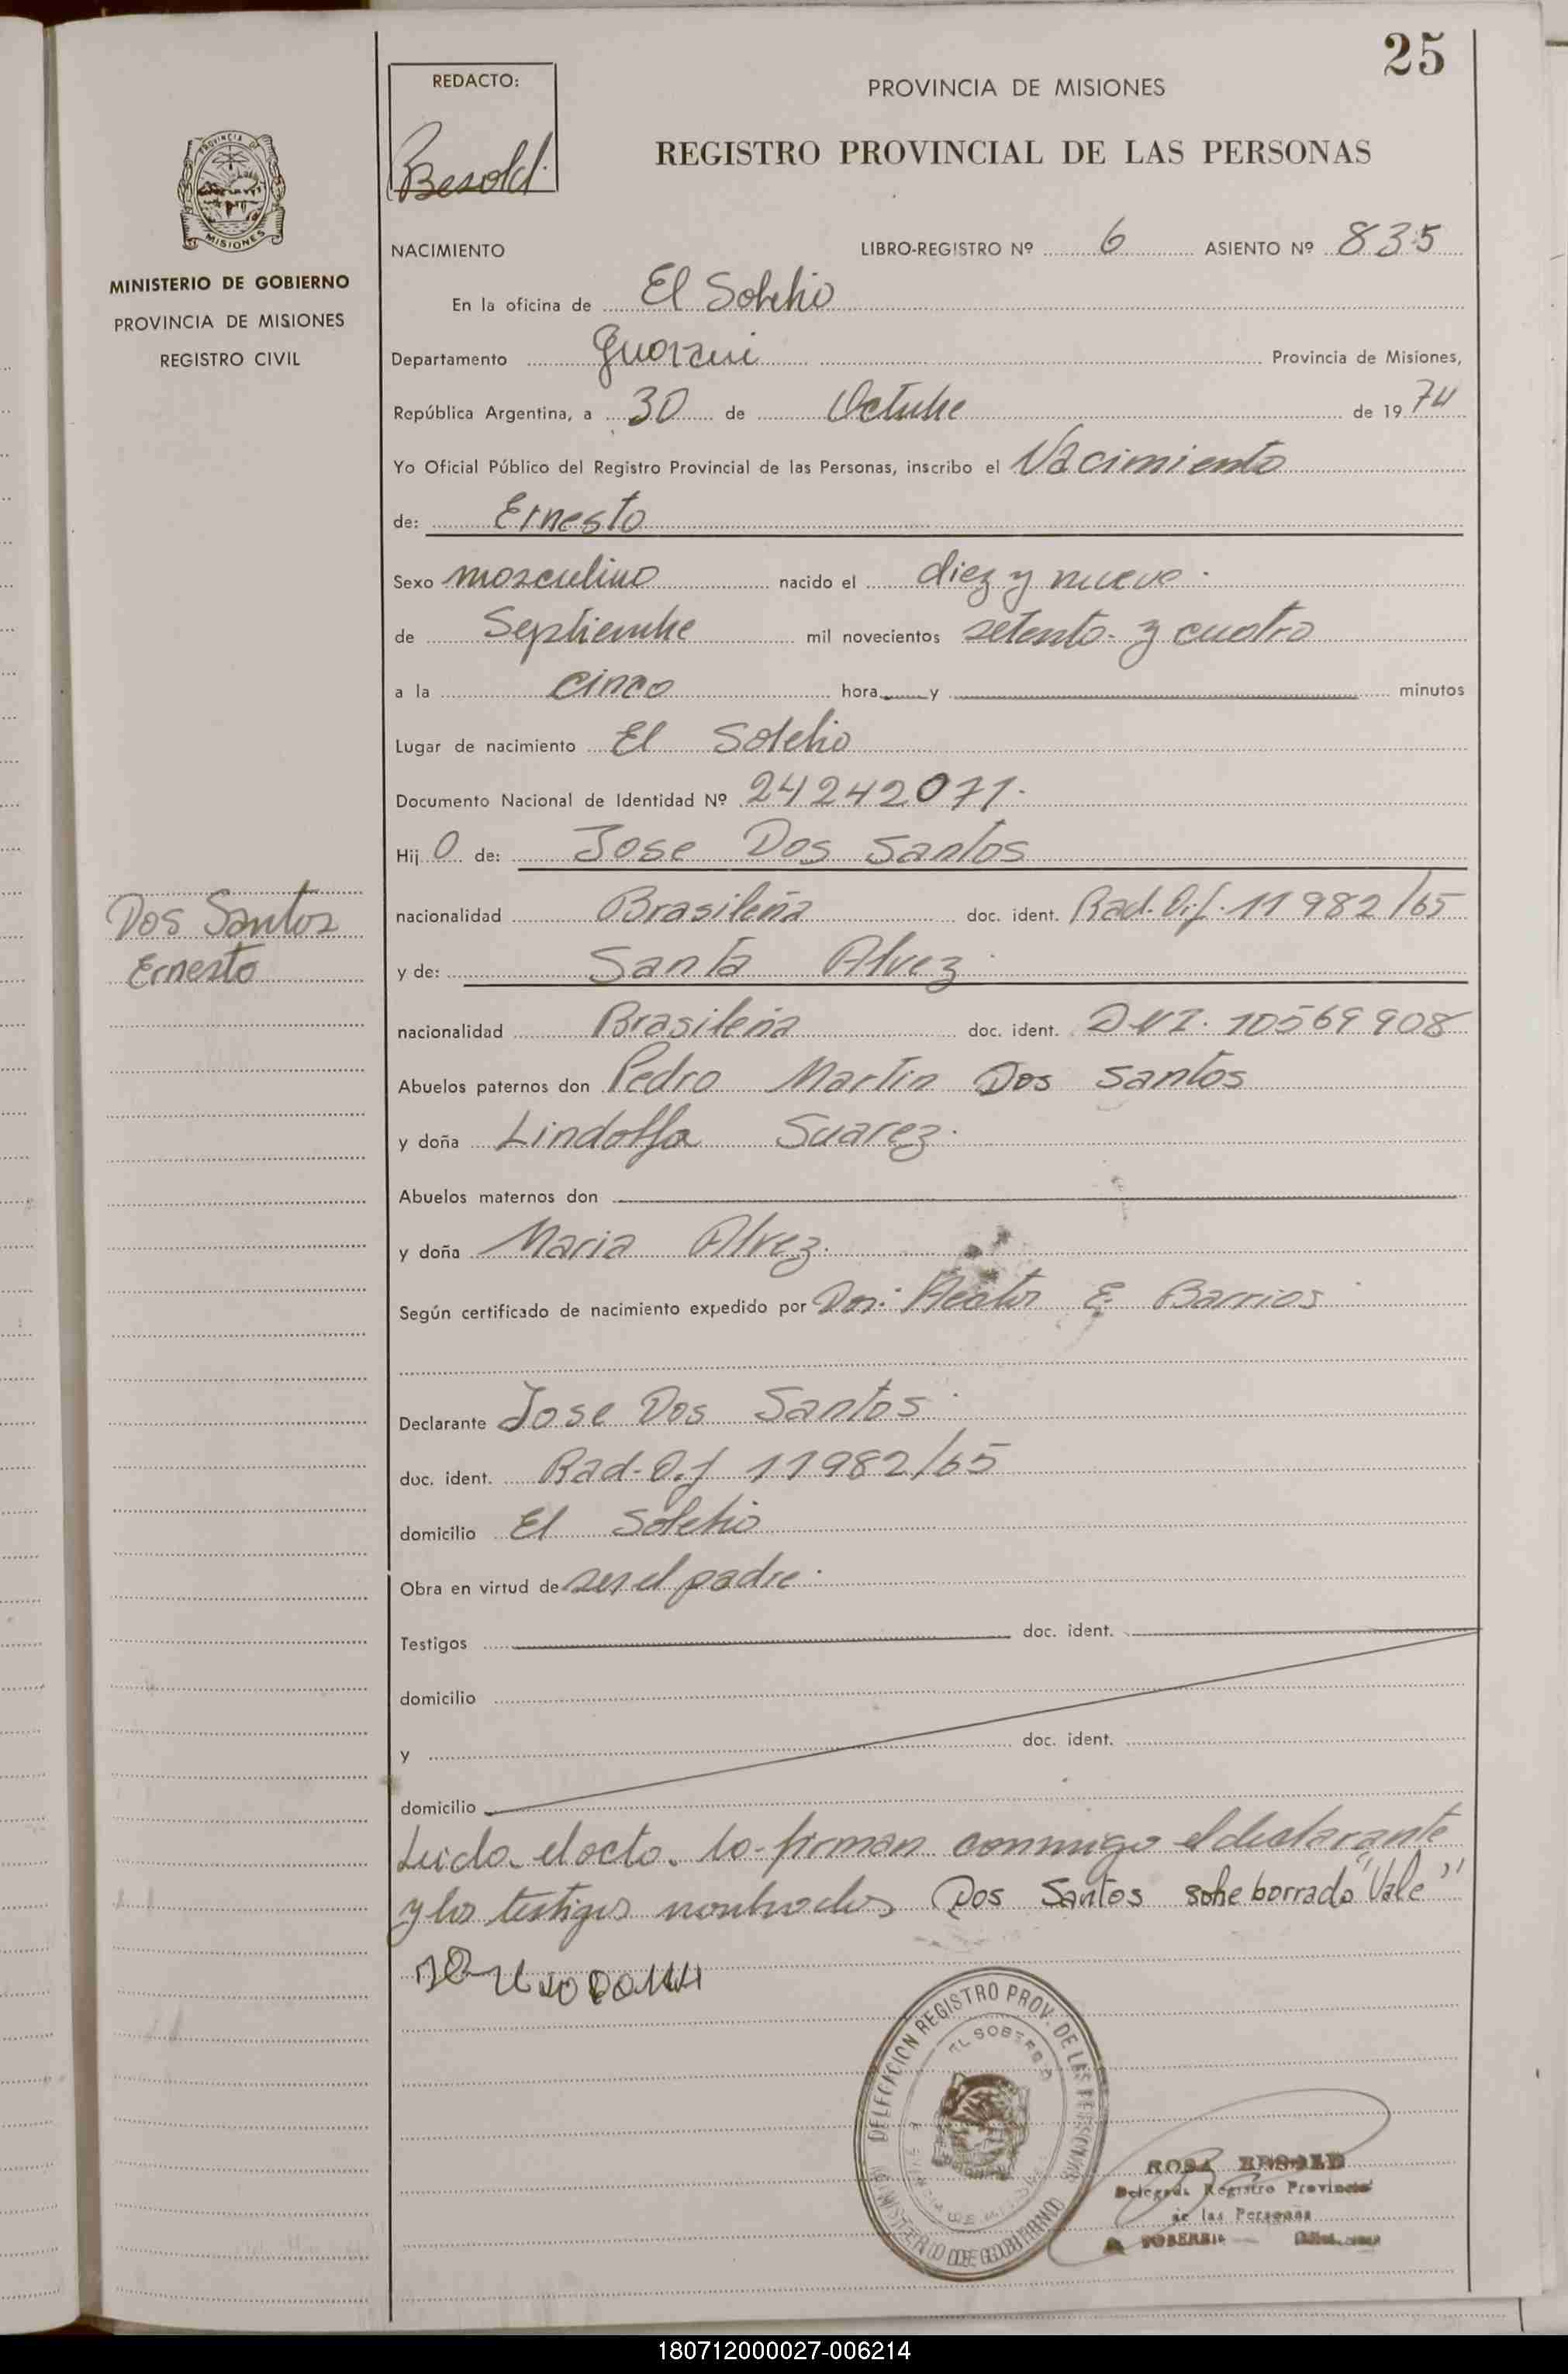 25
REDACTO:
Besold.
PROVINCIA DE MISIONES
REGISTRO PROVINCIAL DE LAS PERSONAS
PROVINCIA DE
MISIONES
MINISTERIO DE GOBIERNO
PROVINCIA DE MISIONES
REGISTRO CIVIL
NACIMIENTO LIBRO-REGISTRO Nº 6 ASIENTO Nº 835
En la oficina de El Soberbio
Departamento Guarani Provincia de Misiones,
República Argentina, a 30 de Octubre de 1974
Yo Oficial Público del Registro Provincial de las Personas, inscribo el Nacimiento
de: Ernesto
Sexo masculino nacido el diez y nueve.
de Septiembre mil novecientos setenta y cuatro
a la cinco hora y minutos
Lugar de nacimiento El Soberbio
Documento Nacional de Identidad Nº 24242071.
Hij o de: Jose Dos Santos
Dos Santos
Ernesto
nacionalidad Brasileña doc. ident. Rad. Dif. 11982/65
y de: Santa Alvez
nacionalidad Brasileña doc. ident. DNI. 10569908
Abuelos paternos don Pedro Martin Dos Santos
y doña Lindolfa Suarez.
Abuelos maternos don
y doña Maria Alvez.
Según certificado de nacimiento expedido por Don: Hector E. Barrios
Declarante Jose Dos Santos
doc. ident. Rad. Dif 11982/65
domicilio El Soberbio
Obra en virtud de ser el padre.
Testigos doc. ident.
domicilio
y doc. ident.
domicilio
Leido el acto lo firman conmigo el declarante
y los testigos nombrados Dos Santos sobre borrado "Vale"
DELEGACION REGISTRO PROV. DE LAS PERSONAS
EL SOBERBIO
MINISTERIO DE GOBIERNO
ROSA BESOLD
Delegada Registro Provincial
de las Personas
SOBERBIO
180712000027-006214